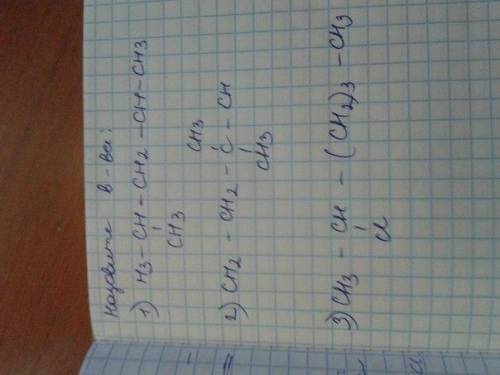 Назовите в-ва:
1) H3-CH-CH2-CH-CH3
CH3
CH3
2) CH2-CH2-C-CH
CH3
3) CH3-CH-(CH2)3-CH3
Cl